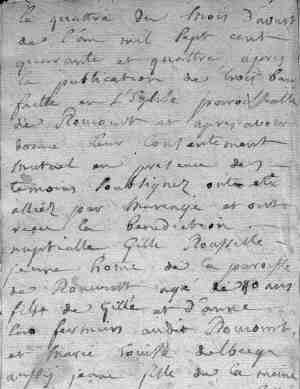 le quattre du mois d'aout
de l'an mil sept cent
quarante et quattre apres
la publication de trois ban
faitte en L'Eglise paroissialle
de Roucourt et apres avoir
donné leur consentement
mutuel en presence des
temoins soubsignez ont eté
alliez par mariage et ont
receu la benediction
nuptialle Gille
jeune home de la paroisse
de Roucourt agé de ans
fils de Gille et d'anne
fermiers audit Roucourt
et Marie Louisse
aussy jeune fille de la meme